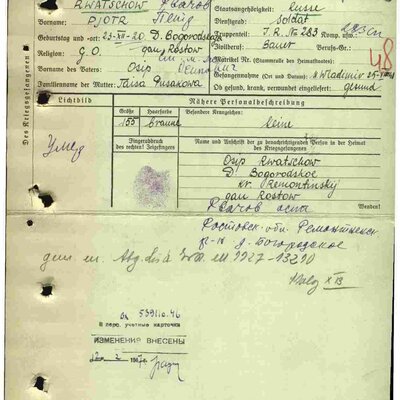 RWATSCHOW Рвачов
Vorname: PJOTR Петр
Geburtstag und -ort: 23-XII-20 D. Bogorodskoe
Religion: G.O. gau Rostow
Vorname des Vaters: Osip
Familienname der Mutter: Taisa Rusakowa
Staatsangehörigkeit: Russe
Dienstgrad: Soldat
Truppenteil: I.R. No 283 Komp. usw.:
Zivilberuf: Bauer Berufs-Gr.:
Matrikel Nr. (Stammrolle des Heimatstaates):
48
Gefangennahme (Ort und Datum): Wladimir 25-
Ob gesund, krank, verwundet eingeliefert: gesund
Des Kriegsgefangenen
Lichtbild
Nähere Personalbeschreibung
Größe Haarfarbe Besondere Kennzeichen:
155 braune keine
Умер
Fingerabdruck des rechten Zeigefingers
Name und Anschrift der zu benachrichtigenden Person in der Heimat des Kriegsgefangenen
Osip Rwatschow
D. Bogorodskoe
kr. Remontinskij
gau Rostow
Рвачов осип
Wenden!
Ростовск. обл. Ремонтненск
р-н д. Богородское
1727-13210
46
В перс. учетные карточки
ИЗМЕНЕНИЯ ВНЕСЕНЫ